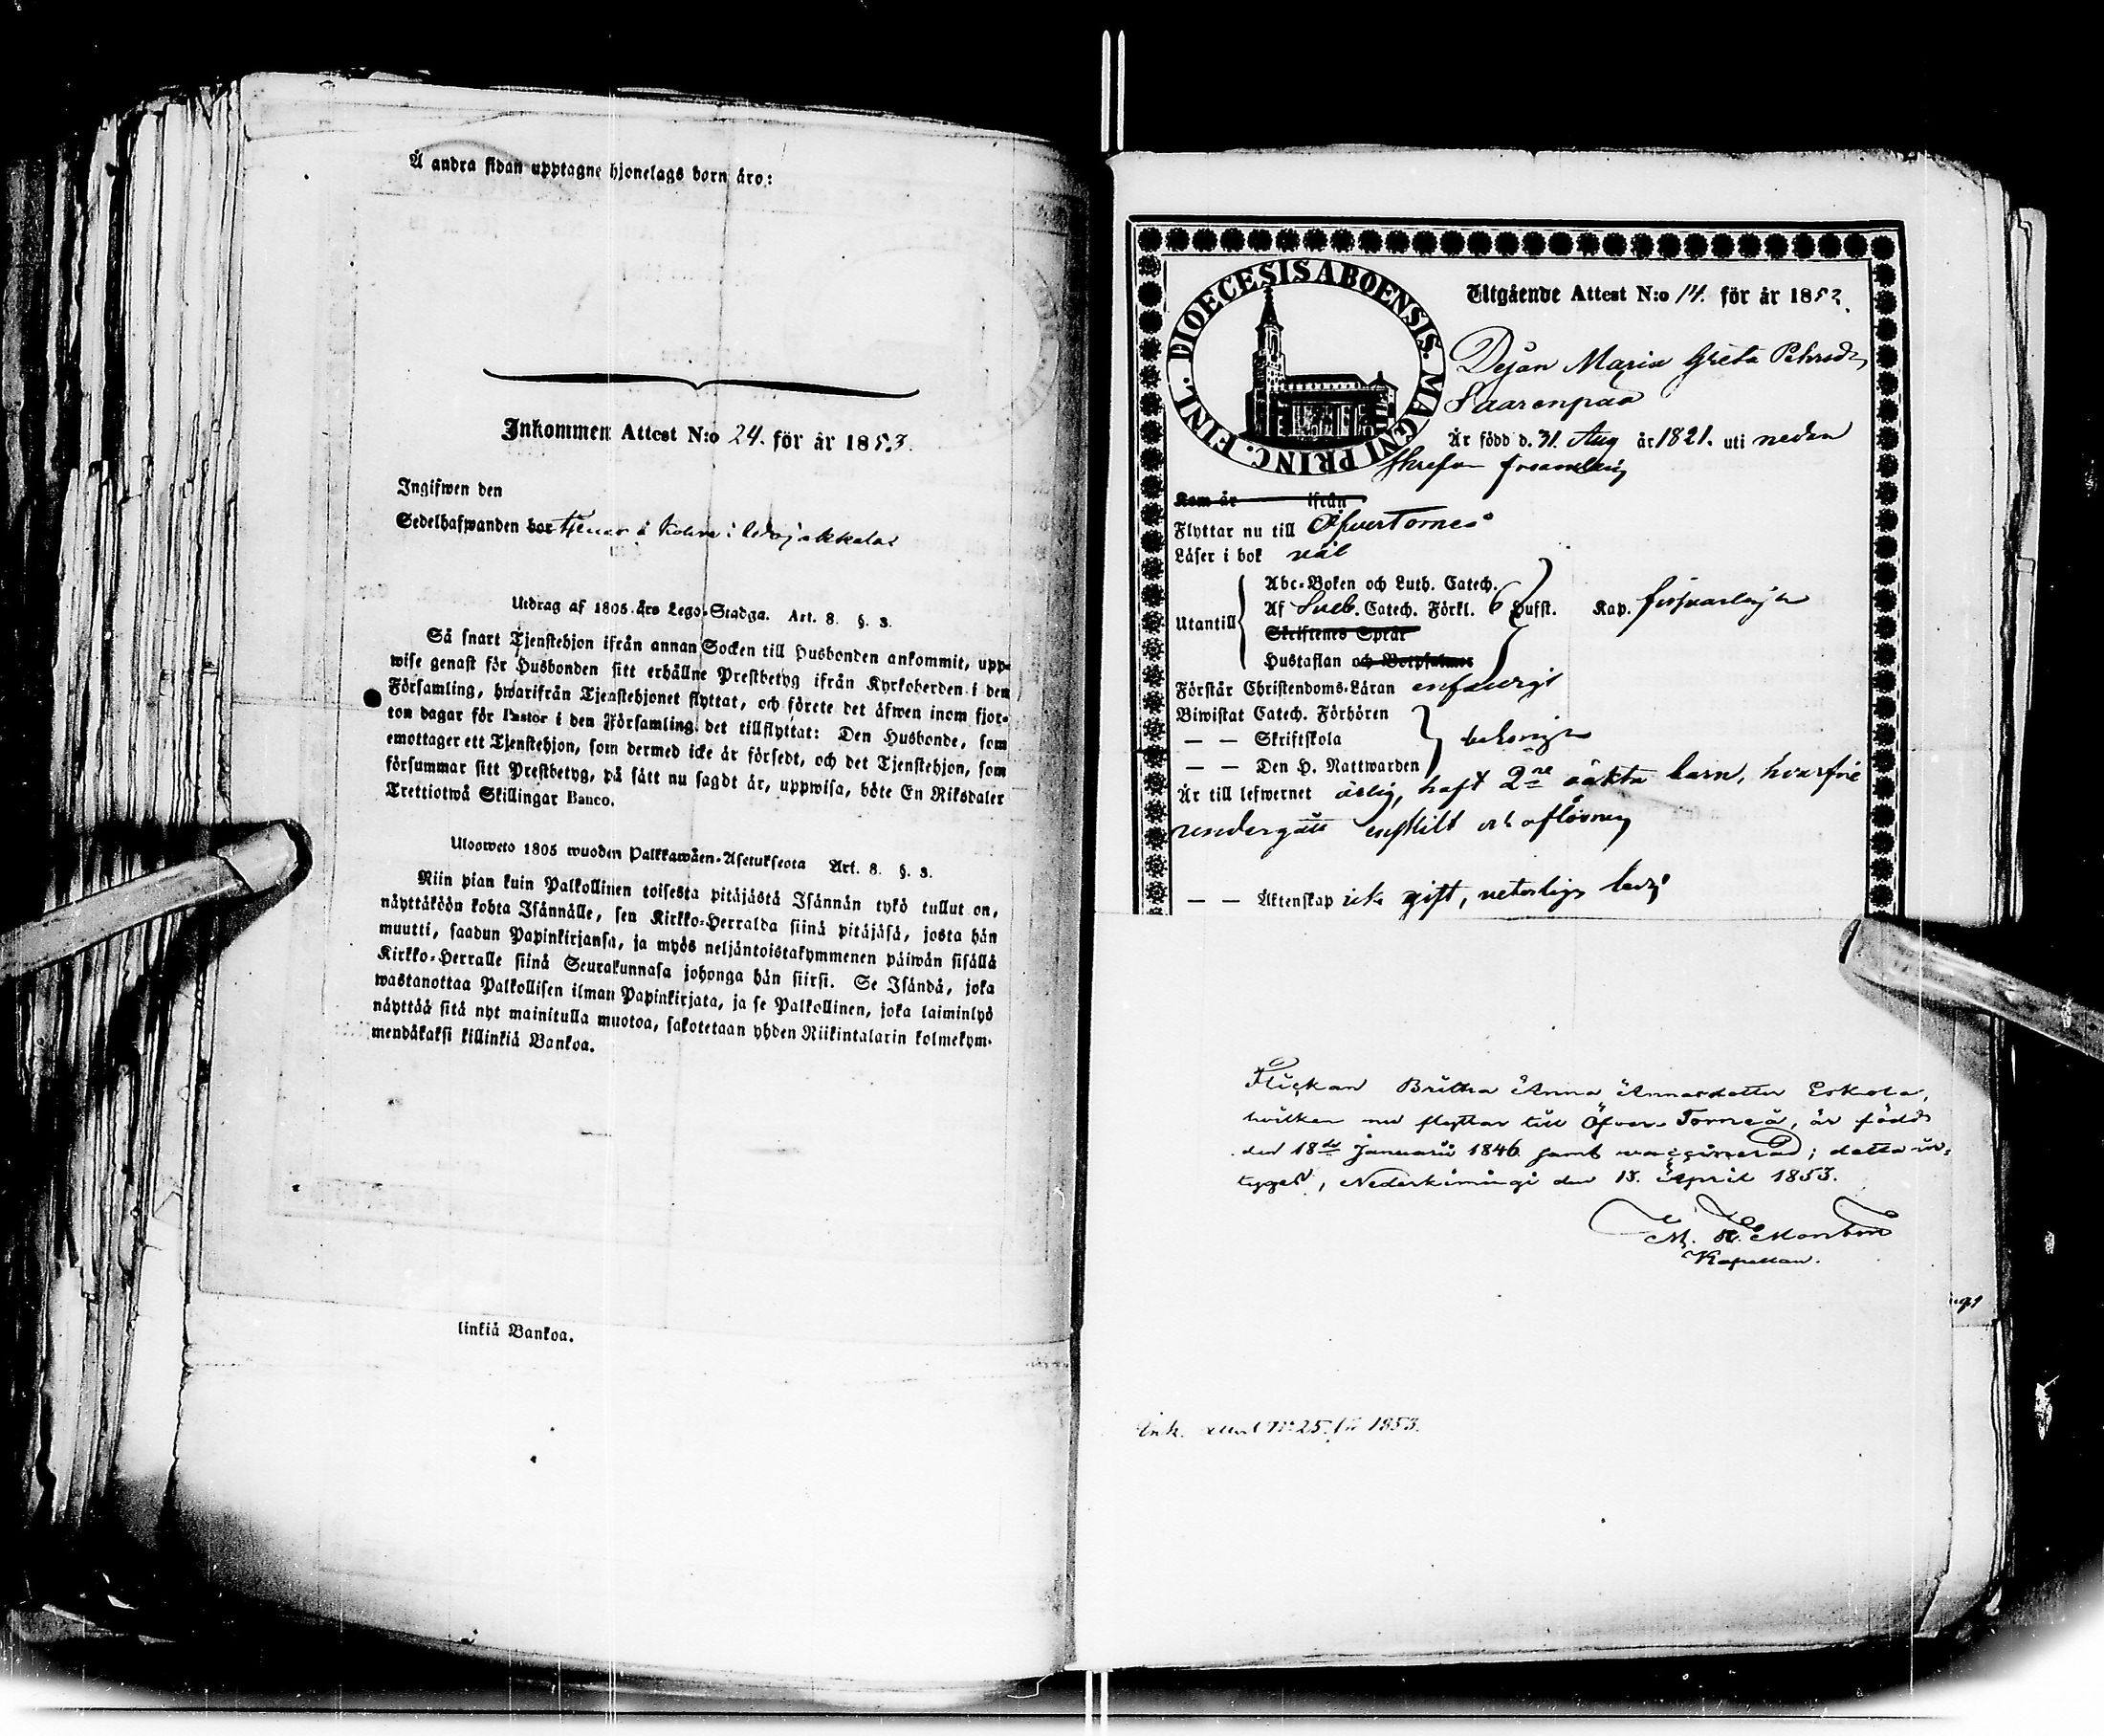 Å andra sidan upptagne hjonelags born äro:
Inkommen Attest N:o 24. för år 1853.
Ingifwen den
Sedelhafwanden bor tjenar å
Utdrag af 1805 års Lego-Stadga. Art. 8. §. 3.
Så snart Tjenstehjon ifrån annan Socken till Husbonden ankommit, upp-
wise genast för Husbonden sitt erhållne Prestbetyg ifrån Kyrkoherden i den
Församling, hwarifrån Tjenstehjonet flyttat, och förete det äfwen inom fjor-
ton dagar för Pastor i den Församling det tillflyttat: Den Husbonde, som
emottager ett Tjenstehjon, som dermed icke är försedt, och det Tjenstehjon, som
försummar sitt Prestbetyg, på sätt nu sagdt är, uppwisa, böte En Riksdaler
Trettiotwå Skillingar Banco.
Ulosweto 1805 wuoden Palkkawäen-Asetuksesta Art. 8. §. 3.
Niin pian kuin Palkollinen toisesta pitäjästä Isännän tykö tullut on,
näyttäköön kohta Isännälle, sen Kirkko-Herralda siinä pitäjäsä, josta hän
muutti, saadun Papinkirjansa, ja myös neljäntoistakymmenen päiwän sisällä
Kirkko-Herralle siinä Seurakunnasa johonga hän siirsi. Se Isändä, joka
wastanottaa Palkollisen ilman Papinkirjata, ja se Palkollinen, joka laiminlyö
näyttää sitä nyt mainitulla muotoa, sakotetaan yhden Riikintalarin kolmekym-
mendäkaksi killinkiä Bankoa.
linkiä Bankoa.
DIOECESIS ABOENSIS. MAGNI PRINC. FINL.
Utgående Attest N:o 14. för år 1853.
Pejan Maria Greta Pehrsdr
Saarenpää
Är född d. 31. Aug år 1821. uti nedan
skrefne församling
Kom år ifrån
Flyttar nu till ÖfverTorneå
Läser i bok väl
Utantill
Abc-Boken och Luth. Catech.
Af Sveb. Catech. Förkl. 6 Hufst. Kap. försvarligen
Skriftenes Språk
Hustaflan och Botpsalmer
Förstår Christendoms-Läran enfaldigt
Biwistat Catech. Förhören
— — Skriftskola behörigen
— — Den H. Nattwarden
Är till lefwernet ärlig, haft 2ne oäkta barn, hvarföre
undergått enskilt och aflösning
— — Äktenskap icke gift, veterligen ledig
Flickan Britha Anna Annasdotter Eskola,
hvilken nu flyttar till Öfver-Torneå, är född
den 18de Januarii 1846 samt vaccinerad; detta in-
tygas, Nederkimingi den 15. April 1853.
Kapellan.
Ink. attest No 25. för 1853.